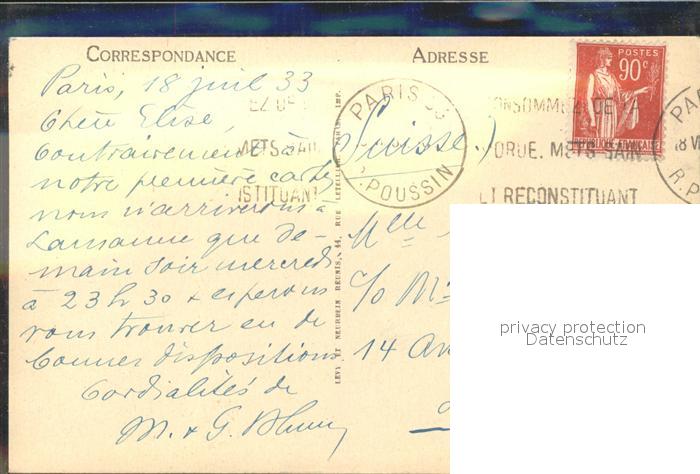 CORRESPONDANCE
Paris, 18 juil 33
Chère Elise,
Contrairement à
notre première carte,
nous n'arriverons à
Lausanne que de-
main soir mercredi
à 23 h 30 & espérons
vous trouver en de
bonnes dispositions
Cordialités de
M. & G.
LEVY ET NEURDEIN REUNIS, 44, RUE LETELLIER, PARIS, IMP.
ADRESSE
POSTES
90 c
REPUBLIQUE FRANÇAISE
PARIS
R. POUSSIN
EZ DE
METS SAIN
ISTITUANT
CONSOMMEZ DE LA
MORUE. METS SAIN
ET RECONSTITUANT
PA
18 VI
R. P
(Suisse)
Mlle
c/o M
14 Av
privacy protection
Datenschutz